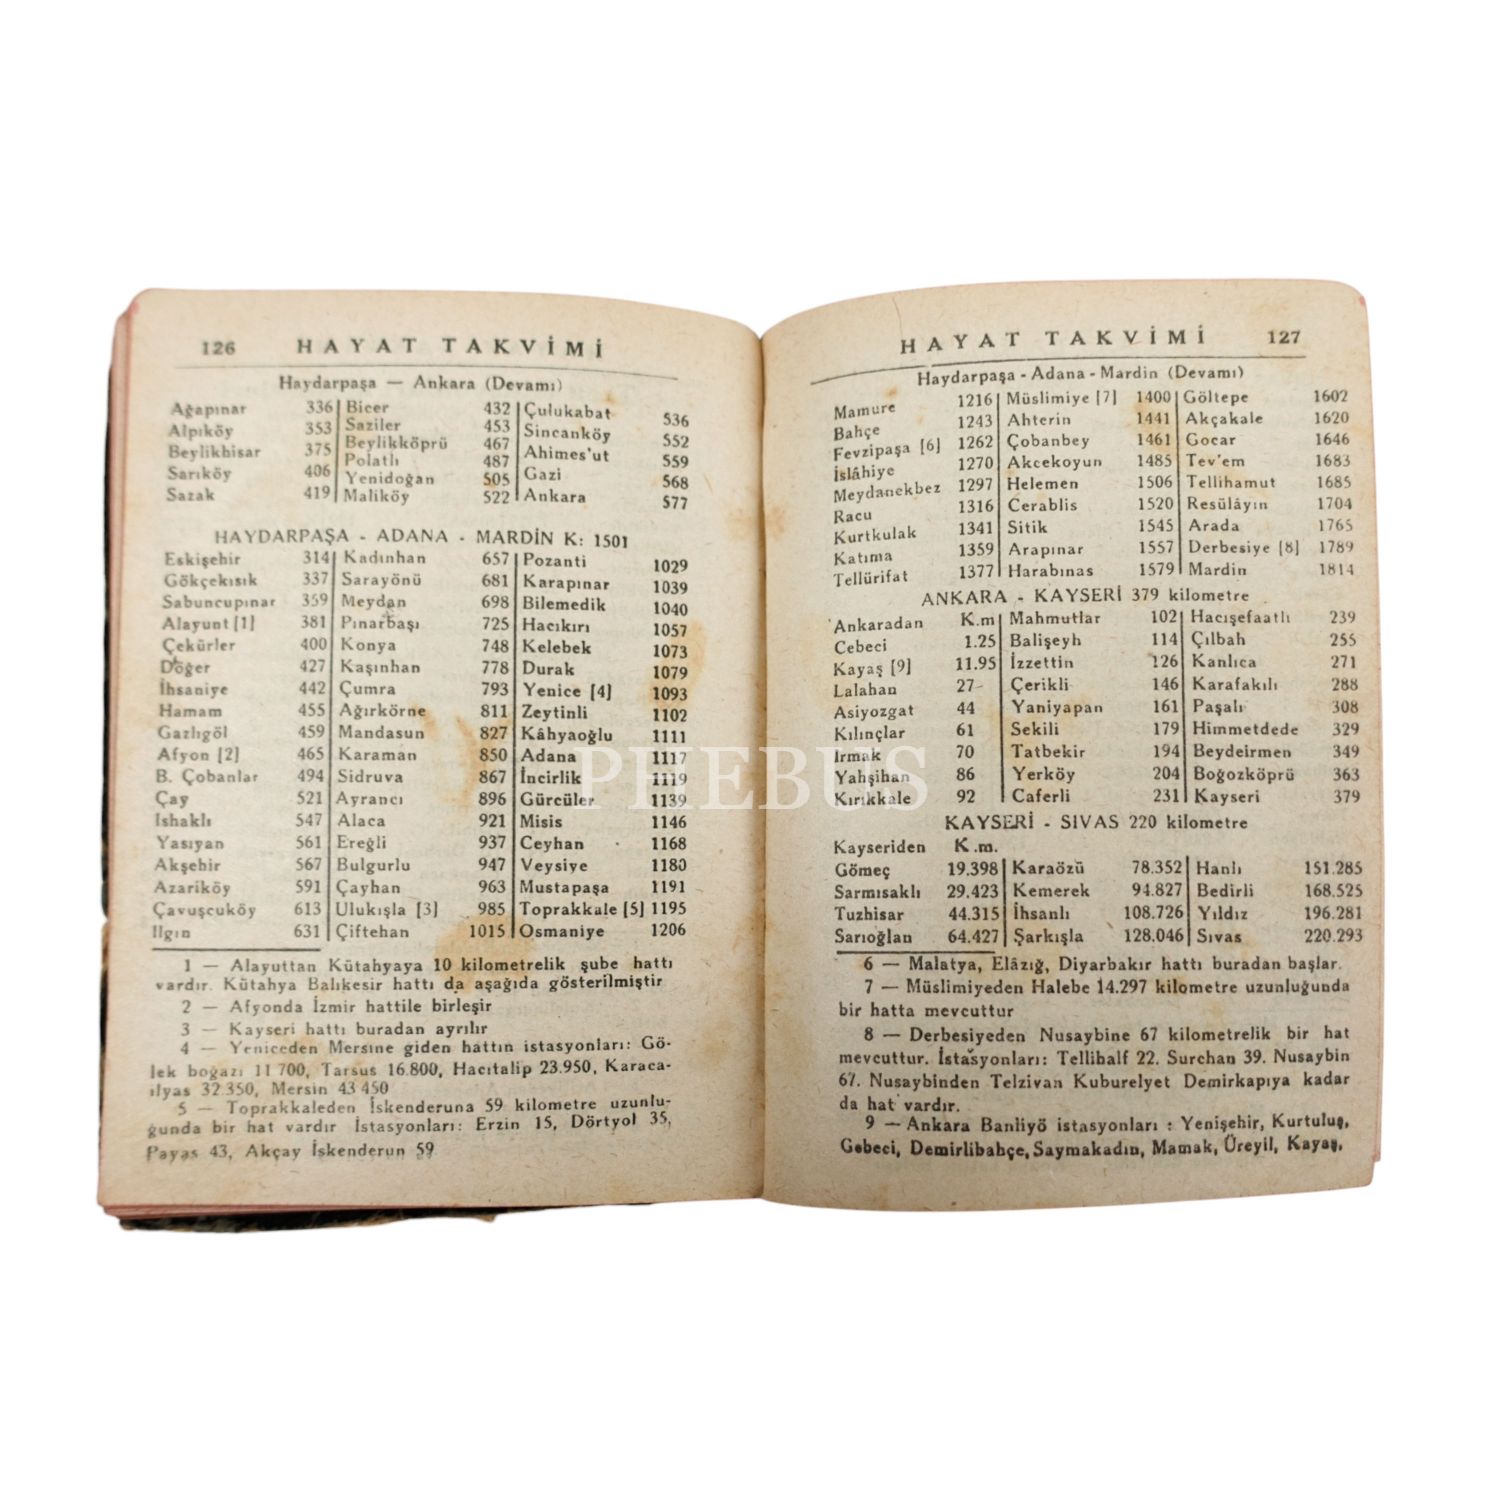 126 HAYAT TAKVİMİ
Haydarpaşa — Ankara (Devamı)
Ağapınar 336 Bicer 432 Çulukabat 536
Alpıköy 353 Saziler 453 Sincanköy 552
Beylikhisar 375 Beylikköprü 467 Ahimes'ut 559
Sarıköy 406 Polatlı 487 Gazi 568
Sazak 419 Yenidoğan 505 Ankara 577
Maliköy 522
HAYDARPAŞA - ADANA - MARDİN K: 1501
Eskişehir 314 Kadınhan 657 Pozanti 1029
Gökçekısık 337 Sarayönü 681 Karapınar 1039
Sabuncupınar 359 Meydan 698 Bilemedik 1040
Alayunt [1] 381 Pınarbaşı 725 Hacıkırı 1057
Çekürler 400 Konya 748 Kelebek 1073
Döğer 427 Kaşınhan 778 Durak 1079
İhsaniye 442 Çumra 793 Yenice [4] 1093
Hamam 455 Ağırkörne 811 Zeytinli 1102
Gazlıgöl 459 Mandasun 827 Kâhyaoğlu 1111
Afyon [2] 465 Karaman 850 Adana 1117
B. Çobanlar 494 Sidruva 867 İncirlik 1119
Çay 521 Ayrancı 896 Gürcüler 1139
Ishaklı 547 Alaca 921 Misis 1146
Yasıyan 561 Ereğli 937 Ceyhan 1168
Akşehir 567 Bulgurlu 947 Veysiye 1180
Azariköy 591 Çayhan 963 Mustapaşa 1191
Çavuşcuköy 613 Ulukışla [3] 985 Toprakkale [5] 1195
Ilgın 631 Çiftehan 1015 Osmaniye 1206
1 — Alayuttan Kütahyaya 10 kilometrelik şube hattı
vardır. Kütahya Balıkesir hattı da aşağıda gösterilmiştir
2 — Afyonda İzmir hattile birleşir
3 — Kayseri hattı buradan ayrılır
4 — Yeniceden Mersine giden hattın istasyonları: Gö-
lek boğazı 11 700, Tarsus 16.800, Hacıtalip 23.950, Karaca-
ilyas 32.350, Mersin 43 450
5 — Toprakkaleden İskenderuna 59 kilometre uzunlu-
ğunda bir hat vardır İstasyonları: Erzin 15, Dörtyol 35,
Payas 43, Akçay İskenderun 59
HAYAT TAKVİMİ 127
Haydarpaşa - Adana - Mardin (Devamı)
Mamure 1216 Müslimiye [7] 1400 Göltepe 1602
Bahçe 1243 Ahterin 1441 Akçakale 1620
Fevzipaşa [6] 1262 Çobanbey 1461 Gocar 1646
İslâhiye 1270 Akcekoyun 1485 Tev'em 1683
Meydanekbez 1297 Helemen 1506 Tellihamut 1685
Racu 1316 Cerablis 1520 Resülâyın 1704
Kurtkulak 1341 Sitik 1545 Arada 1765
Katıma 1359 Arapınar 1557 Derbesiye [8] 1789
Tellürifat 1377 Harabınas 1579 Mardin 1814
ANKARA - KAYSERİ 379 kilometre
Ankaradan K.m Mahmutlar 102 Hacışefaatlı 239
Cebeci 1.25 Balişeyh 114 Çılbah 255
Kayaş [9] 11.95 İzzettin 126 Kanlıca 271
Lalahan 27 Çerikli 146 Karafakılı 288
Asiyozgat 44 Yaniyapan 161 Paşalı 308
Kılınçlar 61 Sekili 179 Himmetdede 329
Irmak 70 Tatbekir 194 Beydeirmen 349
Yahşihan 86 Yerköy 204 Boğozköprü 363
Kırıkkale 92 Caferli 231 Kayseri 379
KAYSERİ - SIVAS 220 kilometre
Kayseriden K.m.
Gömeç 19.398 Karaözü 78.352 Hanlı 151.285
Sarmısaklı 29.423 Kemerek 94.827 Bedirli 168.525
Tuzhisar 44.315 İhsanlı 108.726 Yıldız 196.281
Sarıoğlan 64.427 Şarkışla 128.046 Sıvas 220.293
6 — Malatya, Elâzığ, Diyarbakır hattı buradan başlar.
7 — Müslimiyeden Halebe 14.297 kilometre uzunluğunda
bir hatta mevcuttur
8 — Derbesiyeden Nusaybine 67 kilometrelik bir hat
mevcuttur. İstasyonları: Tellihalf 22. Surchan 39. Nusaybin
67. Nusaybinden Telzivan Kuburelyet Demirkapıya kadar
da hat vardır.
9 — Ankara Banliyö istasyonları : Yenişehir, Kurtuluş,
Gebeci, Demirlibahçe, Saymakadın, Mamak, Üreyil, Kayaş,
PHEBUS